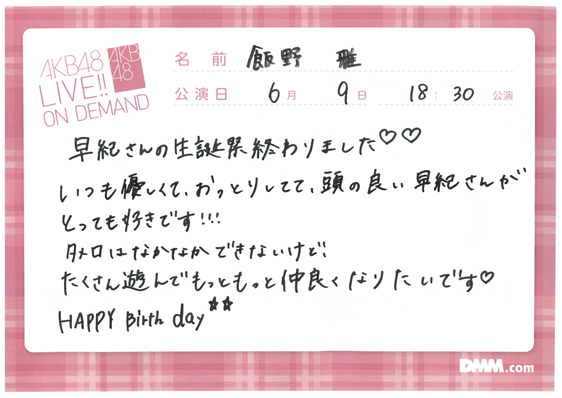 AKB48
LIVE!!
ON DEMAND
AKB
48
名前 飯野 雅
公演日 6月 9日 18:30 公演
早紀さんの生誕祭終わりました♡♡
いつも優しくて、おっとりしてて、頭の良い早紀さんが
とっても好きです!!!
タメ口はなかなかできないけど、
たくさん遊んでもっともっと仲良くなりたいです♡
HAPPY Birth day☆☆
DMM.com